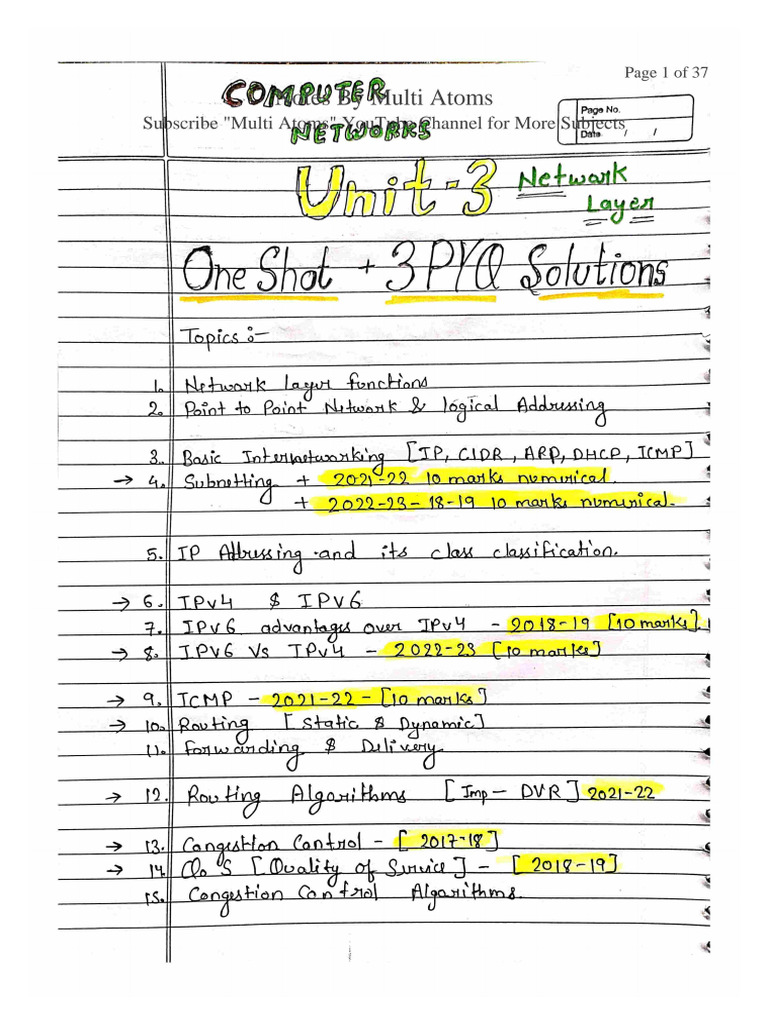 Page 1 of 37
COMPUTER
Notes By Multi Atoms
Subscribe "Multi Atoms" YouTube Channel for More Subjects
NETWORKS
Page No.
Date / /
Unit-3 Network
Layer
One Shot + 3 PYQ Solutions
Topics :-
1. Network layer functions
2. Point to Point Network & logical Addressing
3. Basic Internetworking [IP, CIDR, ARP, DHCP, ICMP]
→ 4. Subnetting + 2021-22 10 marks numirical.
+ 2022-23-18-19 10 marks numirical.
5. IP Addressing and its class classification.
→ 6. IPv4 $ IPV6
7. IPV6 advantages over IPv4 - 2018-19 [10 marks].
→ 8. IPV6 Vs IPv4 - 2022-23 [10 marks]
→ 9. ICMP - 2021-22 - [10 marks]
→ 10. Routing [Static $ Dynamic]
11. Forwarding $ Delivery
→ 12. Routing Algorithms [Imp - DVR] 2021-22
→ 13. Congestion Control - [2017-18]
→ 14. QoS [Quality of Service] - [2018-19]
15. Congestion Control Algorithms.